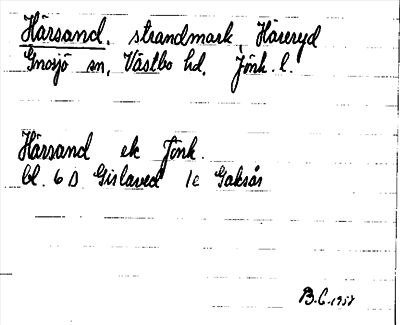 Härsand, strandmark, Häreryd
Gnosjö sn, Västbo hd, Jönk. l.
Härsand ek Jönk.
bl. 6 D Gislaved 1e Gaksås
B.C. 1958